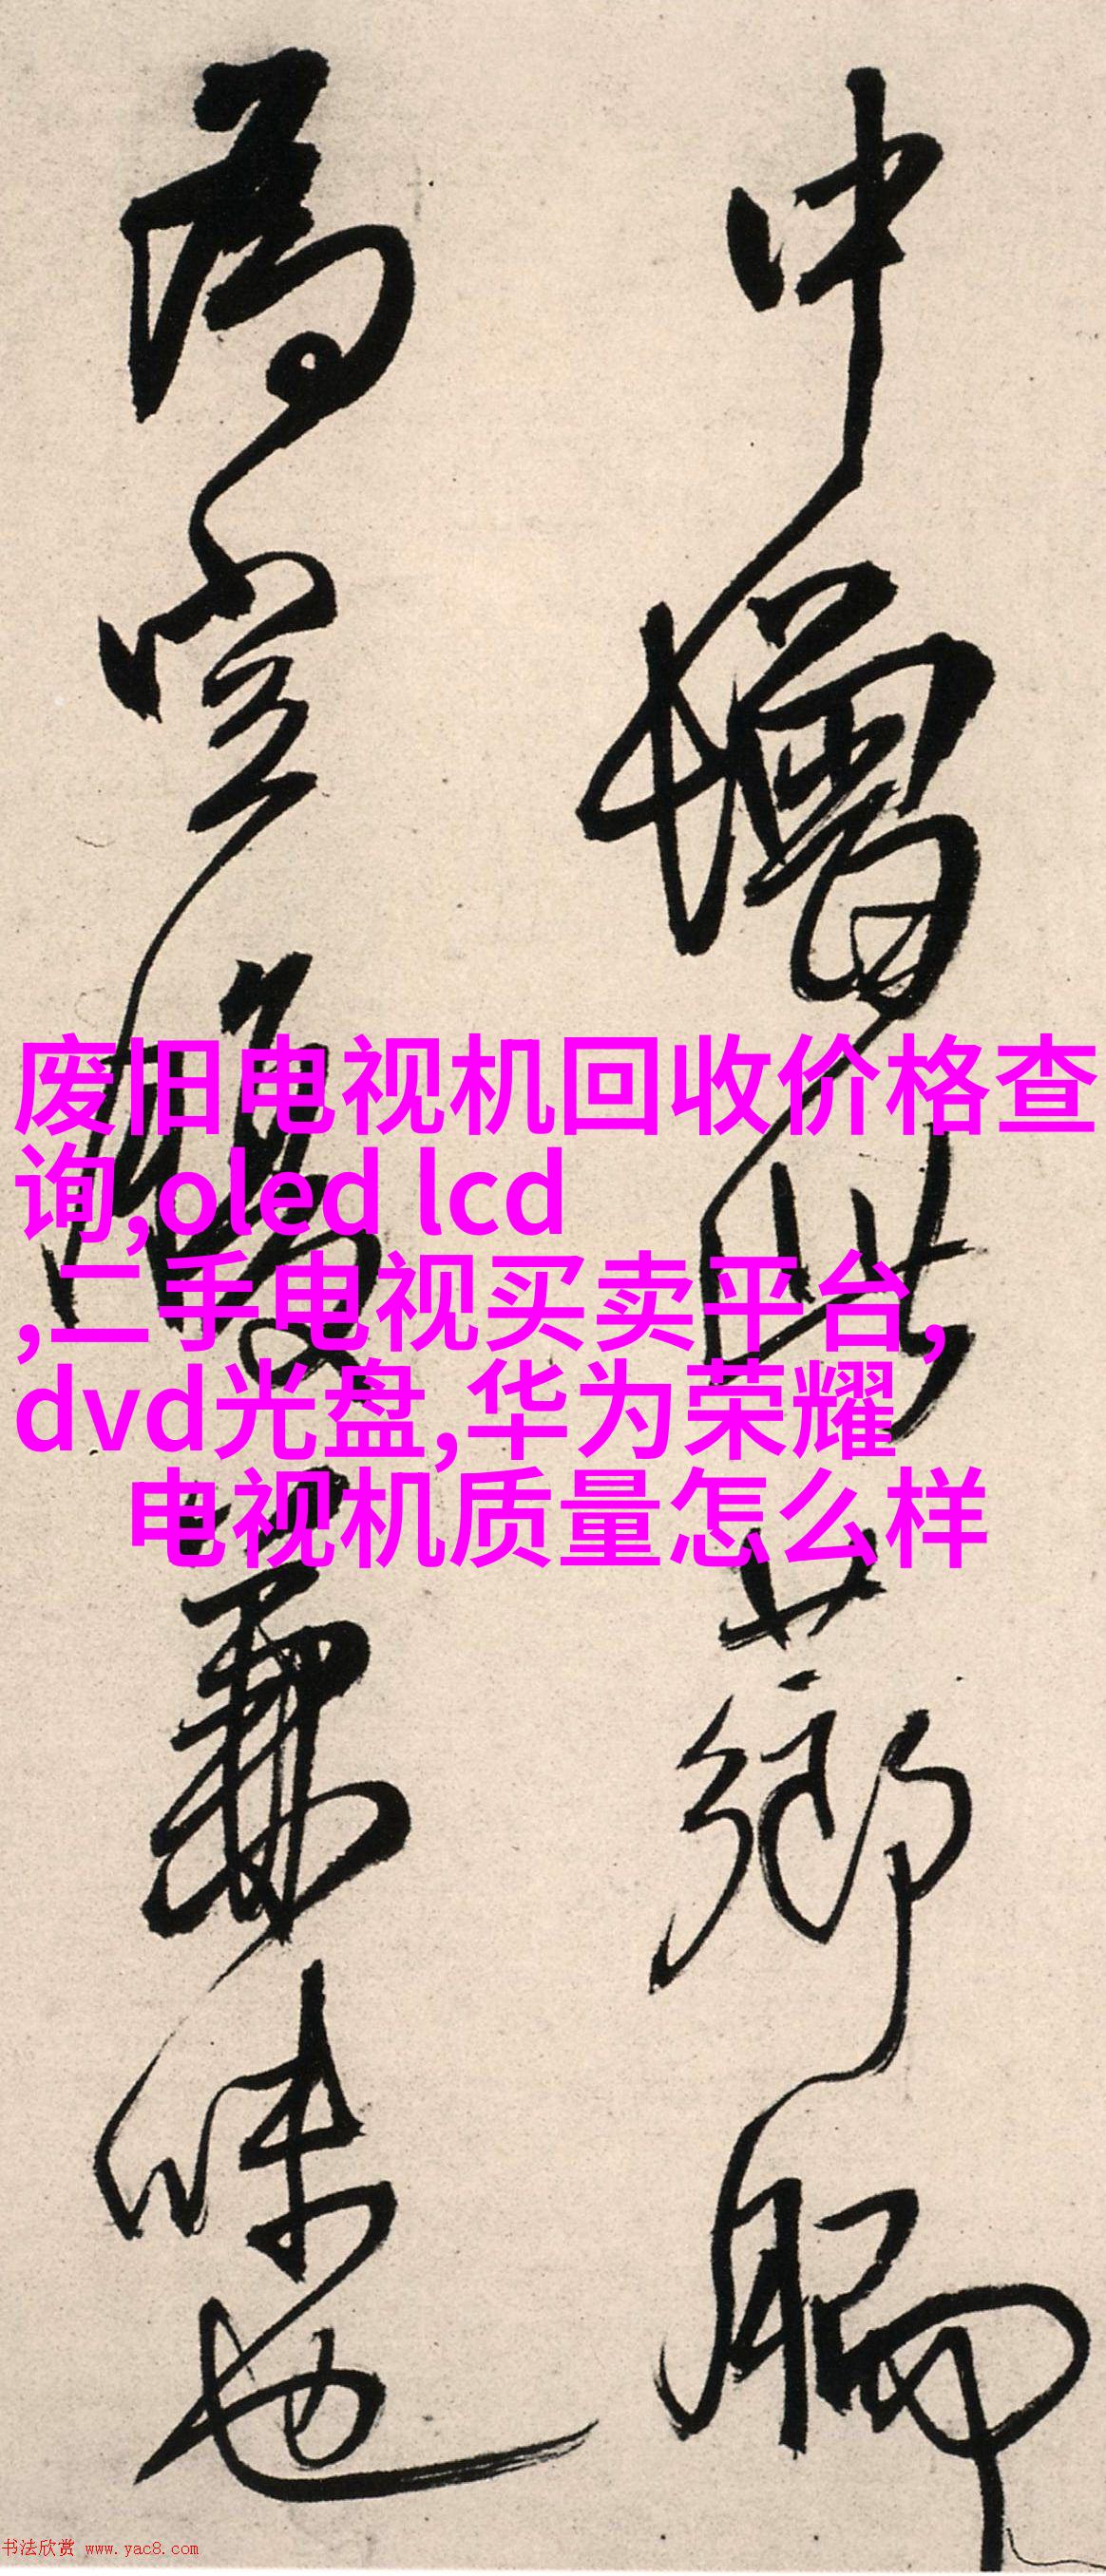 中增此薌
為 兼味也
废旧电视机回收价格查
询,oled lcd
,二手电视买卖平台,
dvd光盘,华为荣耀
电视机质量怎么样
书法欣赏 www.yac8.com